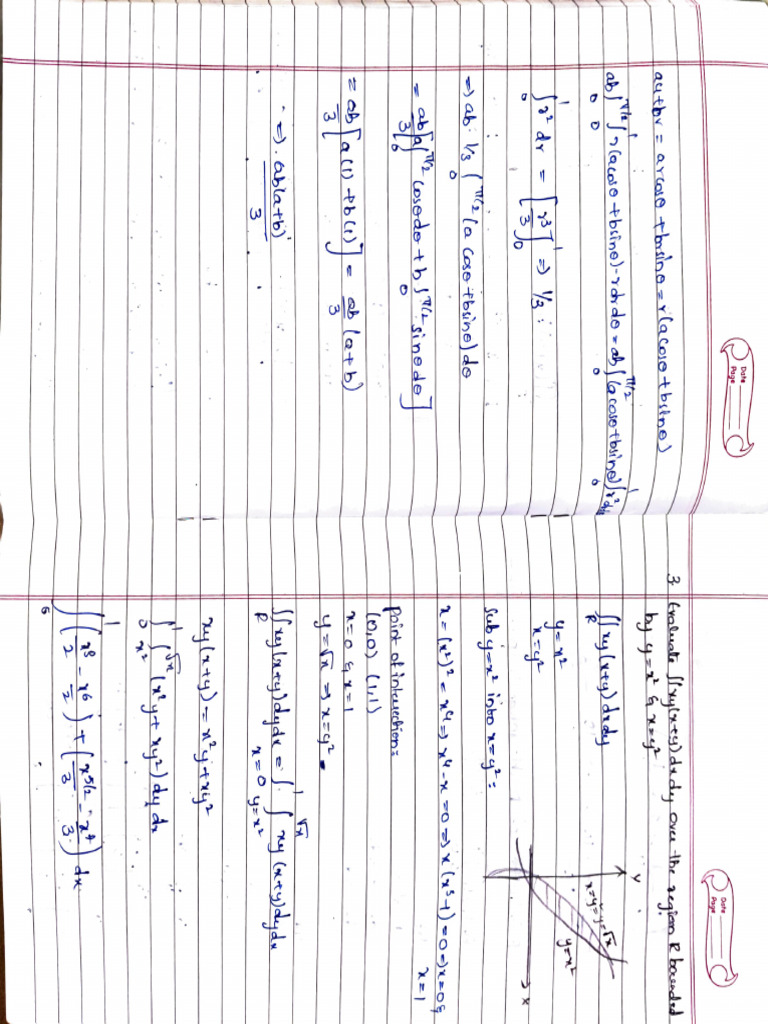 Date
Page
au+bv = arcosθ + brsinθ = r(acosθ + bsinθ)
ab∫₀^π/2 ∫₀¹ r(acosθ+bsinθ)-rdrdθ = ab∫₀^π/2 (acosθ+bsinθ)∫₀¹ r²dr
∫₀¹ r² dr = [r³/3]₀¹ => 1/3 :
=> ab· 1/3 ∫₀^π/2 (a cosθ+bsinθ)dθ
= ab/3 [a∫₀^π/2 cosθdθ + b∫₀^π/2 sinθdθ]
= ab/3 [a(1)+b(1)] = ab/3 (a+b)
=> ab(a+b)/3
Date
Page
3. Evaluate ∫∫xy(x+y)dxdy over the region R bounded
by y=x² & x=y²
∫∫_R xy(x+y)dxdy
y=x²
x=y²
Y
x=y²=y=√x
y=x²
X
sub y=x² into x=y² =
x=(x²)² = x⁴ => x⁴-x=0 => x(x³-1)=0 => x=0 &
x=1
point of intersection =
(0,0) (1,1)
x=0 & x=1
y=√x => x=y²
∫∫_R xy(x+y)dydx = ∫_x=0^1 ∫_y=x²^√x xy(x+y)dydx
xy(x+y) = x²y+xy²
∫₀¹ ∫_x²^√x (x²y+xy²)dydx